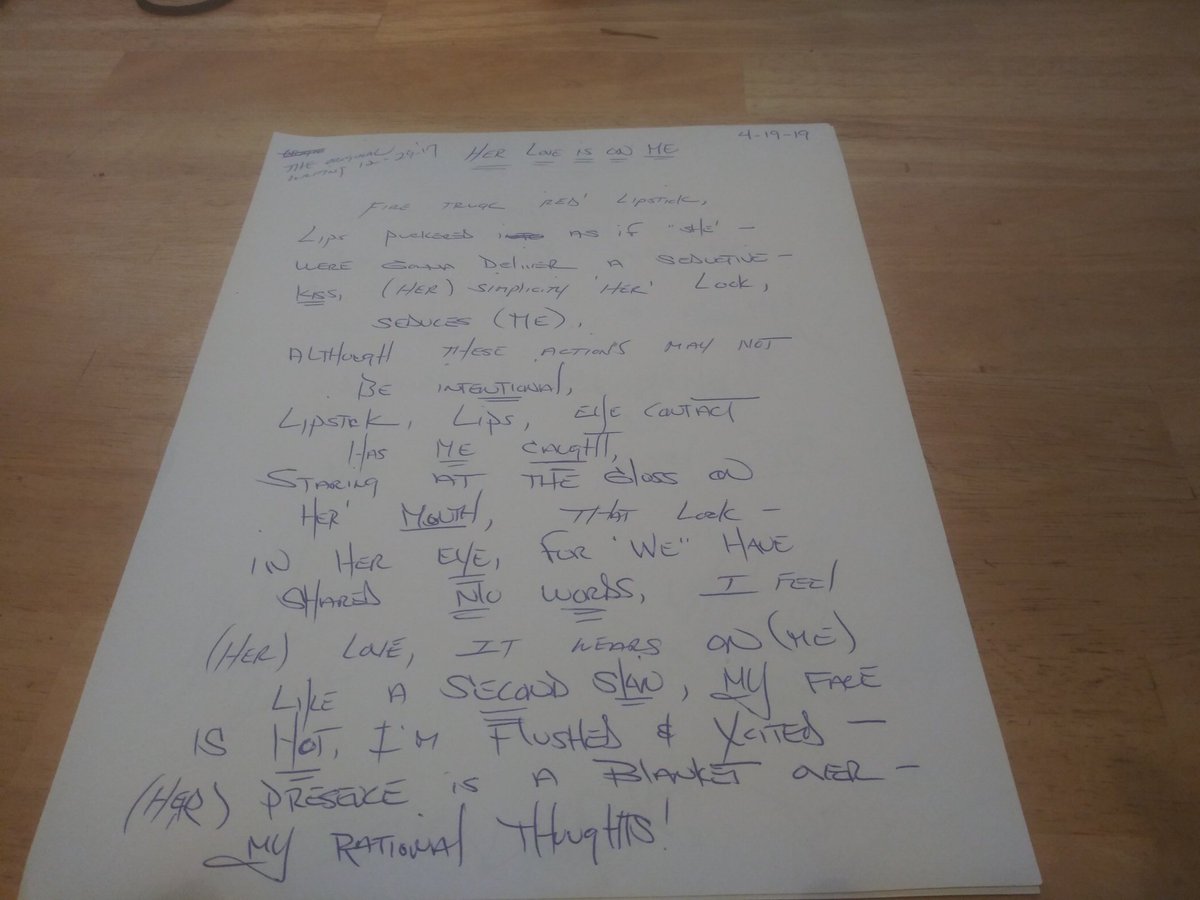 THE ORIGINAL
WRITING 12-29-17
HER LOVE IS ON ME
4-19-19
FIRE TRUCK RED' LIPSTICK,
LIPS PUCKERED AS IF "SHE" -
WERE GONNA DELIVER A SEDUCTIVE -
KISS, (HER) SIMPLICITY 'HER' LOOK,
SEDUCES (ME),
ALTHOUGH THESE ACTIONS MAY NOT
BE INTENTIONAL,
LIPSTICK, LIPS, EYE CONTACT
HAS ME CAUGHT,
STARING AT THE GLOSS ON
HER' MOUTH, THAT LOOK -
IN HER EYE, FOR "WE" HAVE
SHARED NO WORDS, I FEEL
(HER) LOVE, IT WEARS ON (ME)
LIKE A SECOND SKIN, MY FACE
IS HOT, I'M FLUSHED & XCITED -
(HER) PRESENCE IS A BLANKET OVER -
MY RATIONAL THOUGHTS!